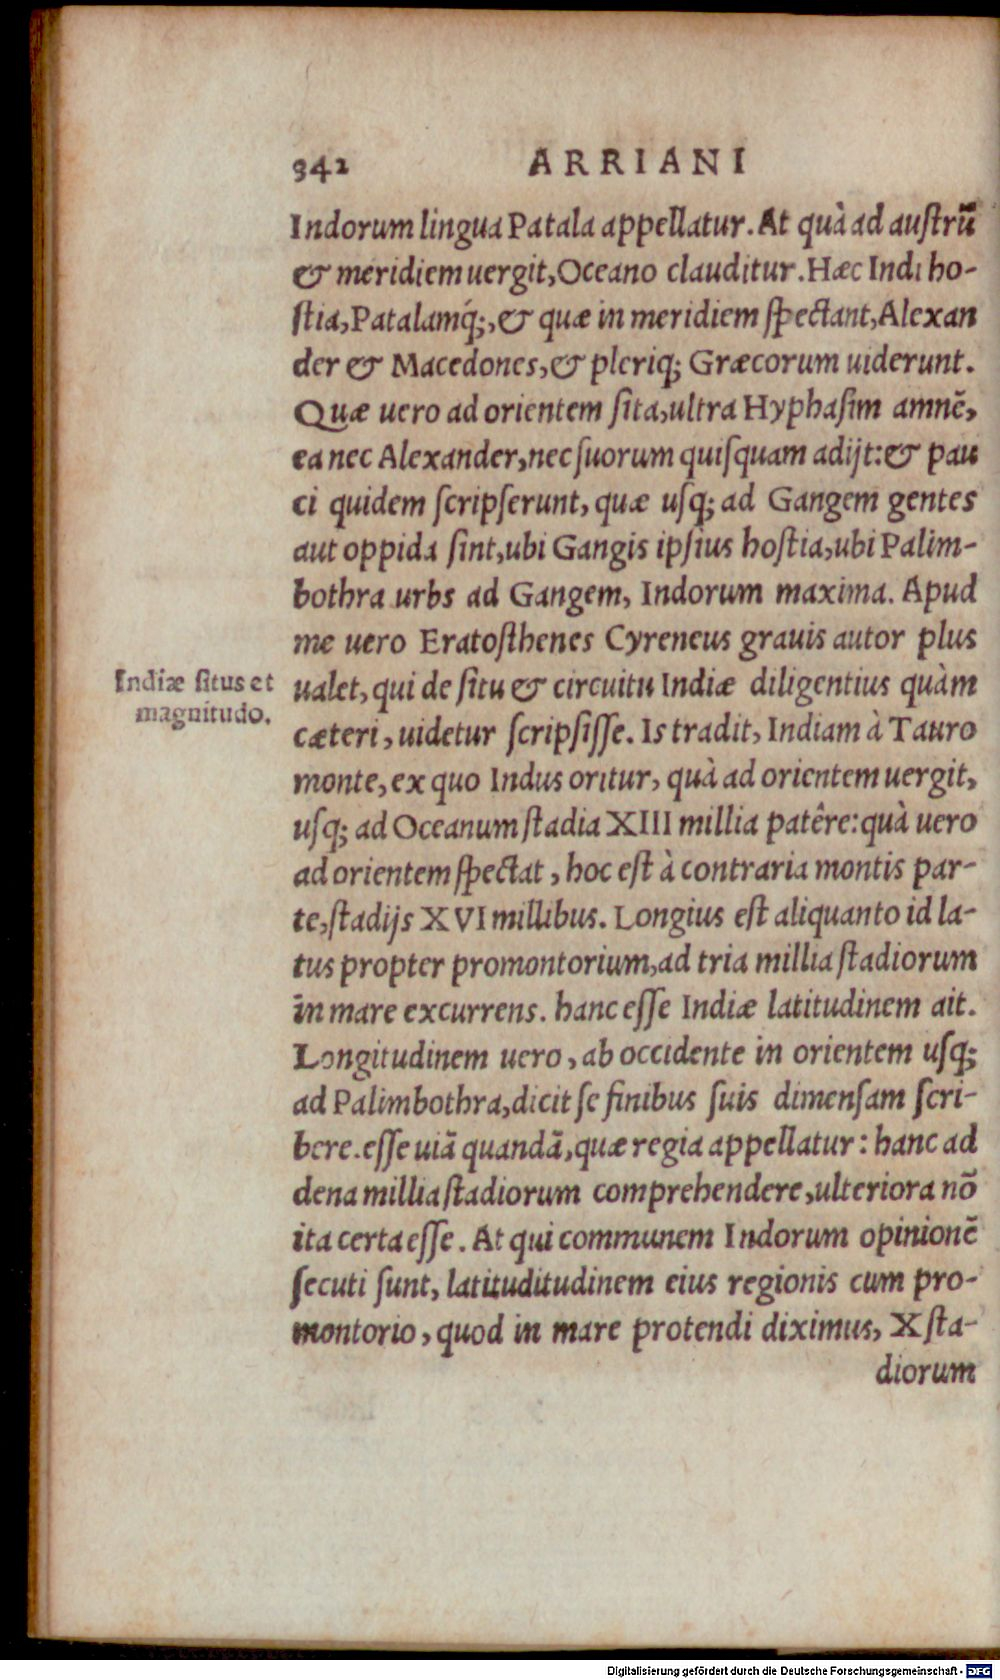 342 ARRIANI
Indorum lingua Patala appellatur. At quà ad auſtrũ
& meridiem uergit, Oceano clauditur. Hæc Indi ho-
ſtia, Patalamq́;, & quæ in meridiem ſpectant, Alexan
der & Macedones, & pleriq; Græcorum uiderunt.
Quæ uero ad orientem ſita, ultra Hyphaſim amnẽ,
ea nec Alexander, nec ſuorum quiſquam adijt: & pau
ci quidem ſcripſerunt, quæ uſq; ad Gangem gentes
aut oppida ſint, ubi Gangis ipſius hoſtia, ubi Palim-
bothra urbs ad Gangem, Indorum maxima. Apud
me uero Eratoſthenes Cyreneus grauis autor plus
Indiæ ſitus et
magnitudo.
ualet, qui de ſitu & circuitu Indiæ diligentius quàm
cæteri, uidetur ſcripſiſſe. Is tradit, Indiam à Tauro
monte, ex quo Indus oritur, quà ad orientem uergit,
uſq; ad Oceanum ſtadia XIII millia patêre: quà uero
ad orientem ſpectat, hoc eſt à contraria montis par-
te, ſtadijs XVI millibus. Longius eſt aliquanto id la-
tus propter promontorium, ad tria millia ſtadiorum
in mare excurrens. hanc eſſe Indiæ latitudinem ait.
Longitudinem uero, ab occidente in orientem uſq;
ad Palimbothra, dicit ſe finibus ſuis dimenſam ſcri-
bere. eſſe uiã quandã, quæ regia appellatur: hanc ad
dena millia ſtadiorum comprehendere, ulteriora nõ
ita certa eſſe. At qui communem Indorum opinionẽ
ſecuti ſunt, latituditudinem eius regionis cum pro-
montorio, quod in mare protendi diximus, X ſta-
diorum
Digitalisierung gefördert durch die Deutsche Forschungsgemeinschaft - DFG